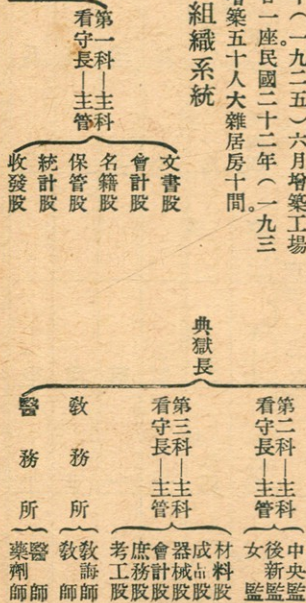 （一九二五）六月增築工場
一座民國二十二年（一九三
築五十人大雜居房十間。
組織系統
第一科—主科
看守長—主管
文書股
會計股
名籍股
保管股
統計股
收發股
典獄長
第二科—主科
看守長—主管
中央監
後新監
女監
第三科—主科
看守長—主管
材料股
成品股
器械股
會計股
庶務股
考工股
教務所
教誨師
教師
醫務所
醫師
藥劑師